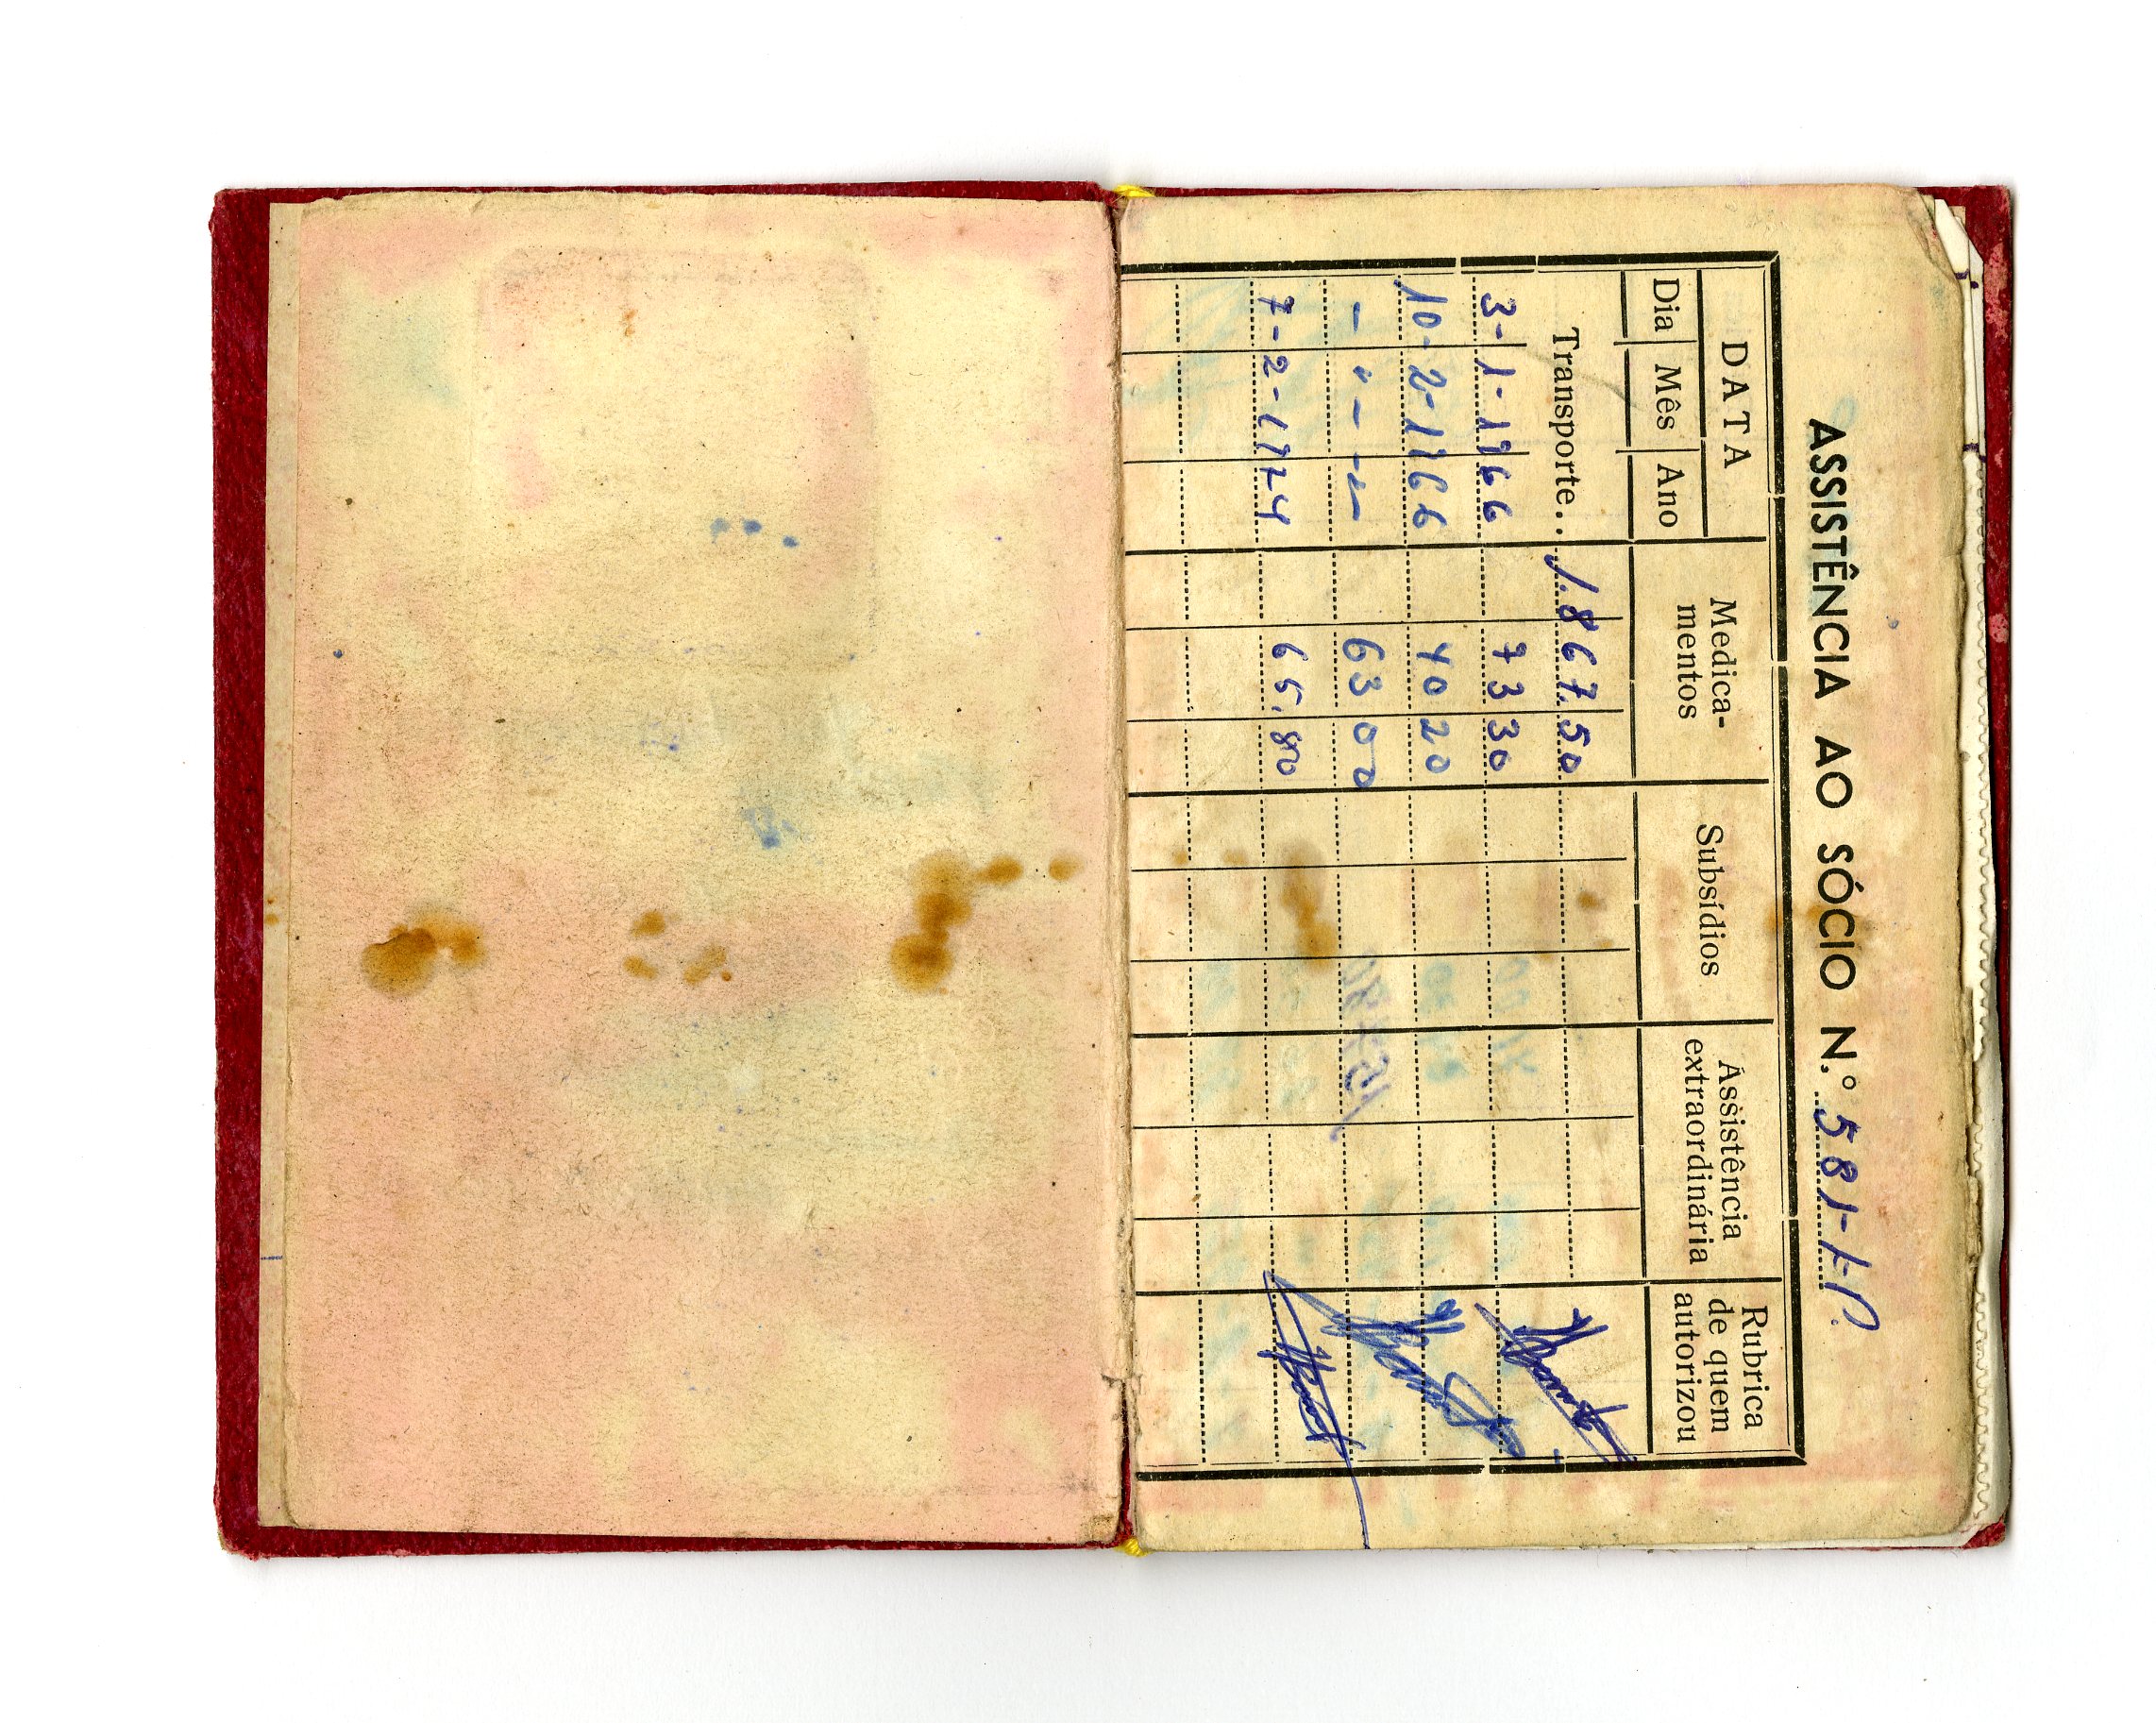 ASSISTÊNCIA AO SÓCIO N.º 581-
DATA
Dia Mês Ano
Medica-
mentos
Subsídios
Assistência
extraordinária
Rubrica
de quem
autorizou
Transporte.. 1.867.50
3-1-1966 73 30
10-2-1966 40 20
- " - " - 63 00
7-2-1974 65.80